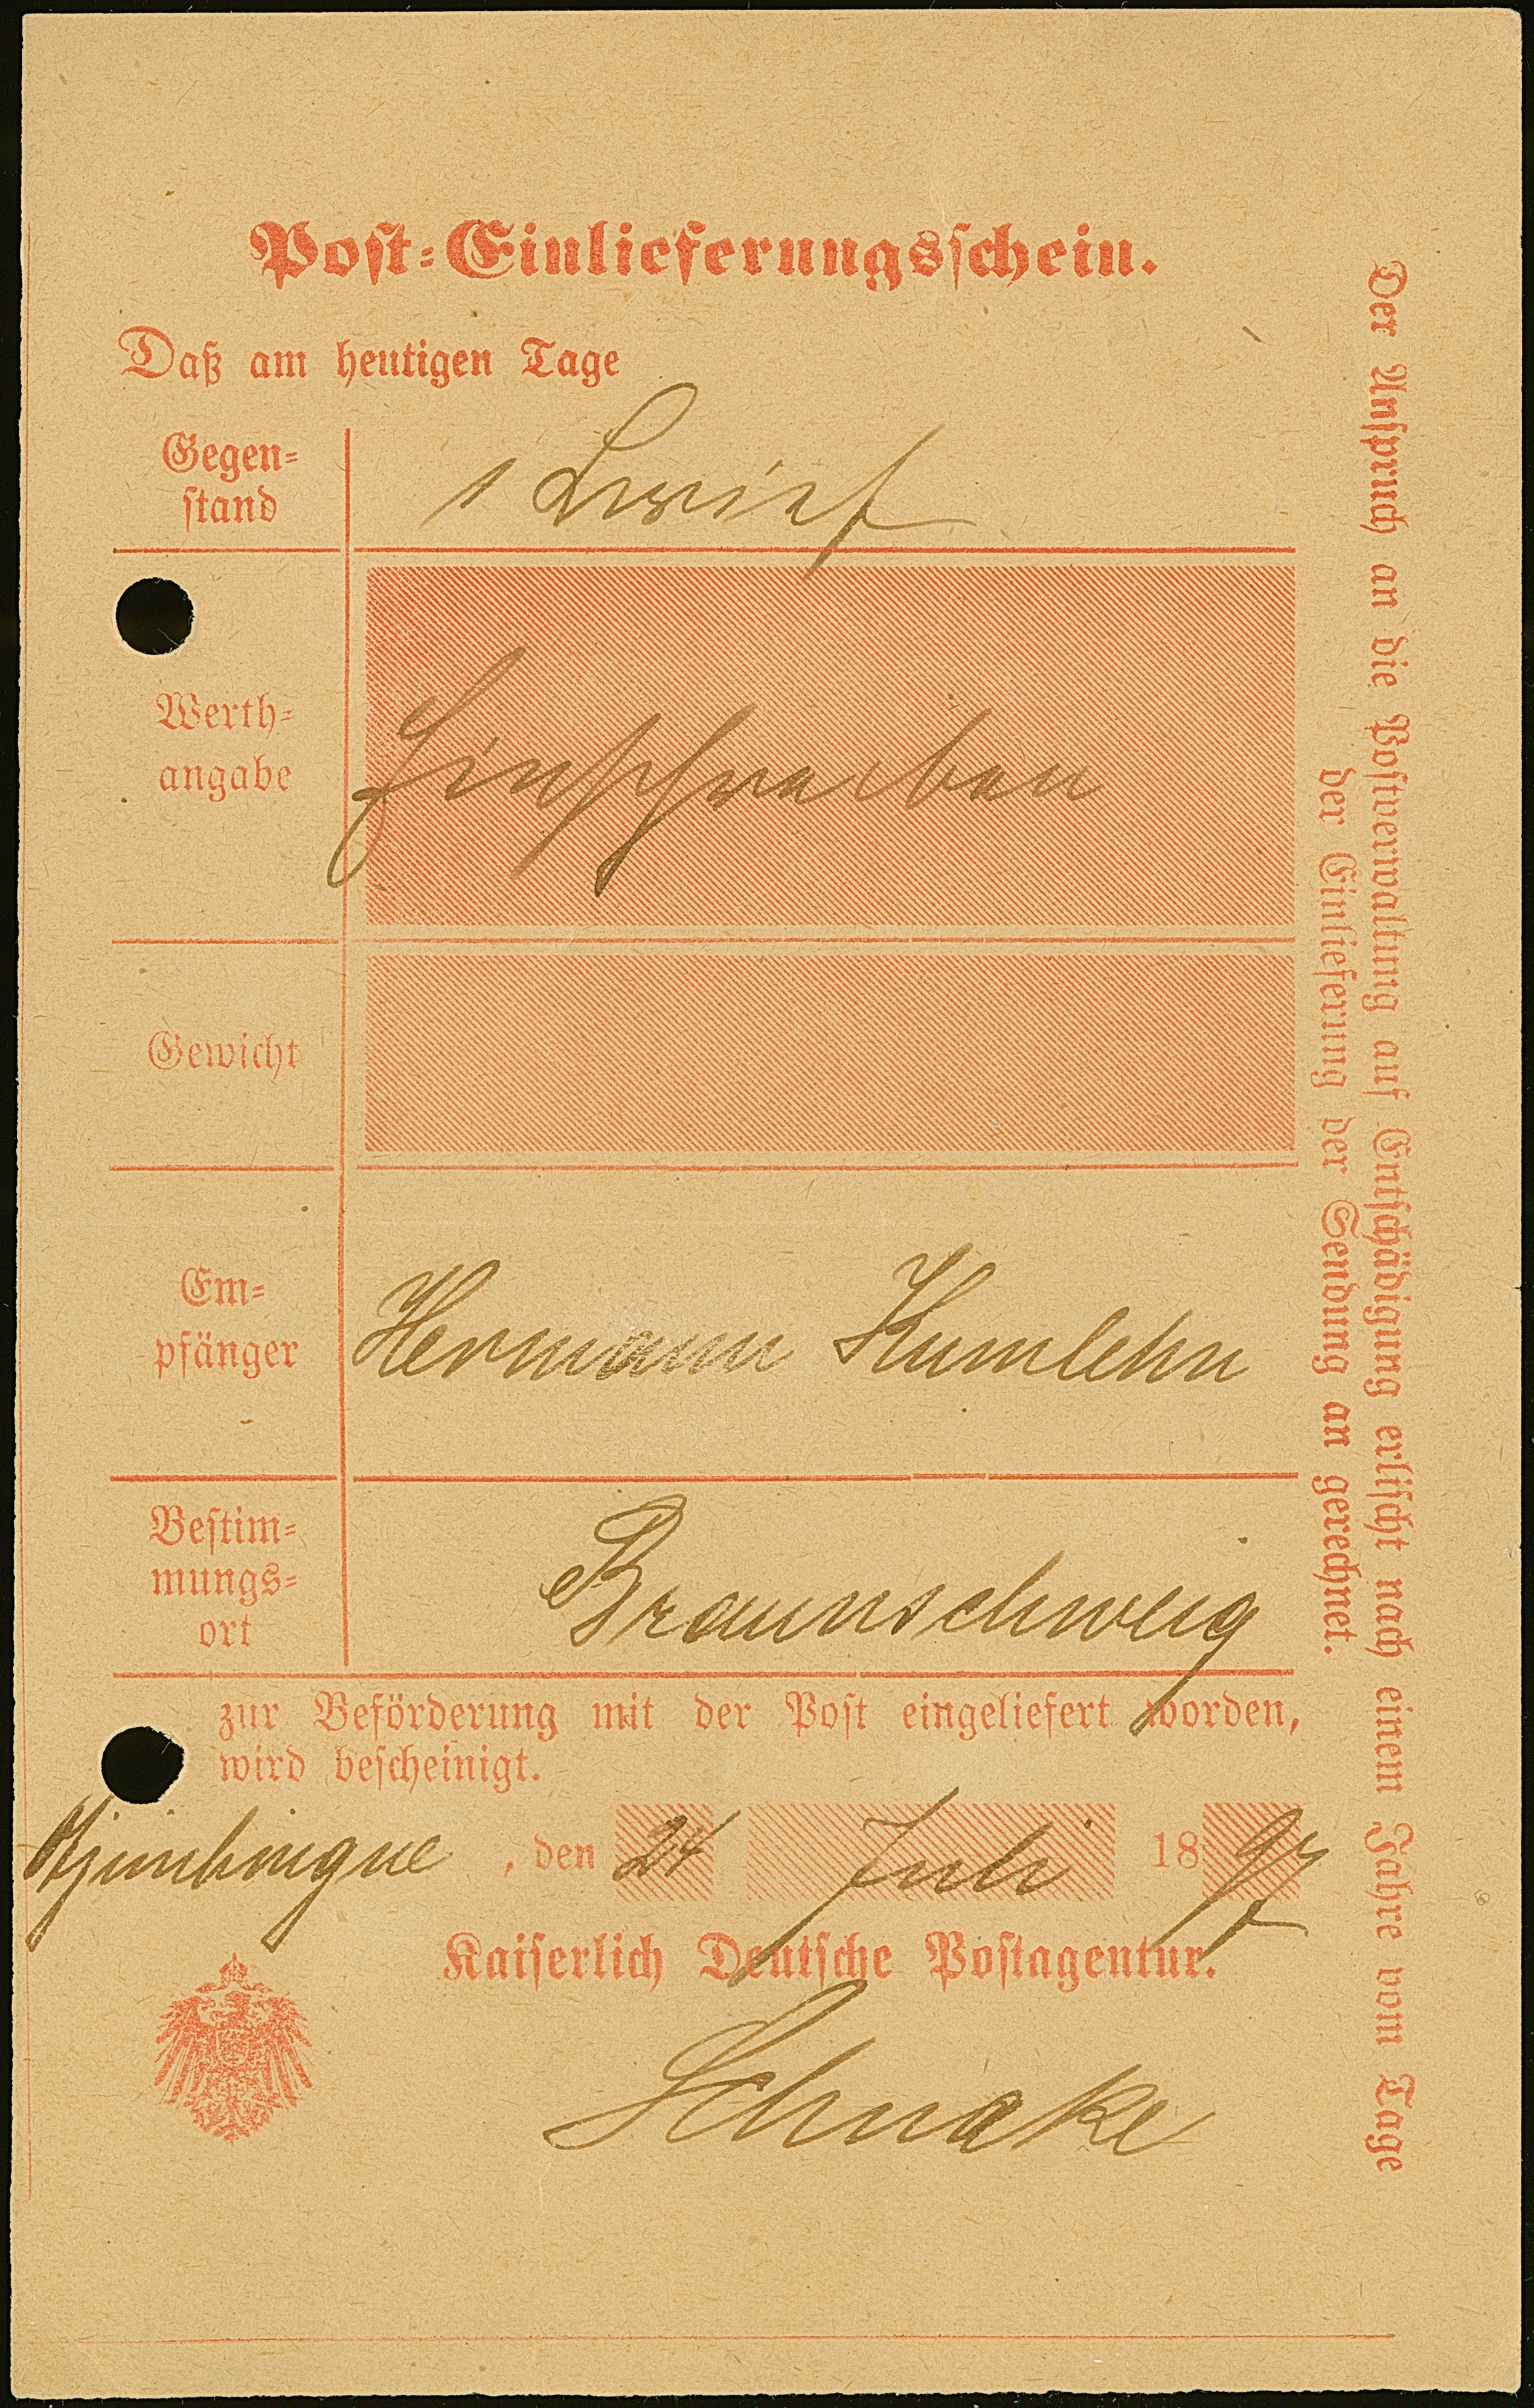 Post-Einlieferungsschein.
Daß am heutigen Tage
Gegen-
stand
1 Brief
Werth-
angabe
Einschreiben
Gewicht
Em-
pfänger
Hermann Kumlehn
Bestim-
mungs-
ort
Braunschweig
zur Beförderung mit der Post eingeliefert worden,
wird bescheinigt.
Otjimbingue, den 24 Juli 1897
Kaiserlich Deutsche Postagentur.
Schnake
Der Anspruch an die Postverwaltung auf Entschädigung erlischt nach einem Jahre vom Tage
der Einlieferung der Sendung an gerechnet.